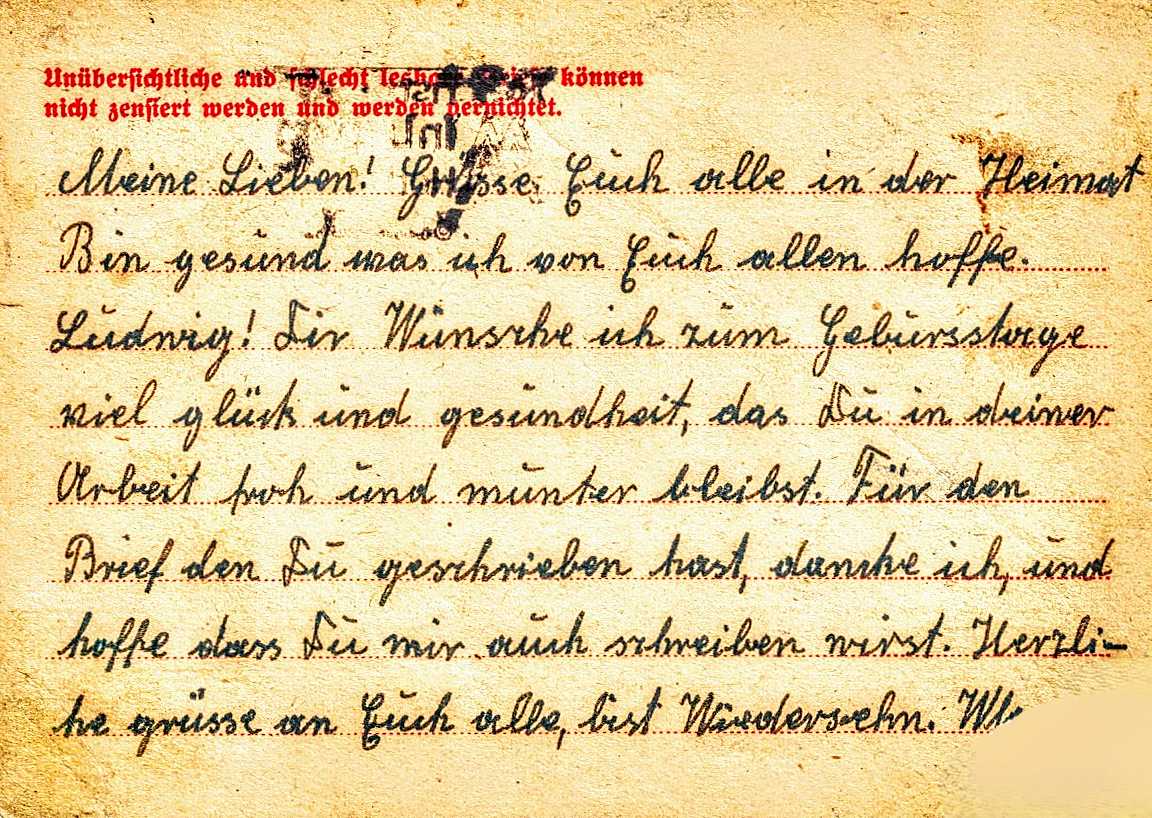 Unübersichtliche und schlecht lesbare Briefe können
nicht zensiert werden und werden vernichtet.
Meine Lieben! Grüsse Euch alle in der Heimat
Bin gesund was ich von Euch allen hoffe.
Ludwig! Dir Wünsche ich zum Gebursstage
viel glück und gesundheit, das Du in deiner
Arbeit froh und munter bleibst. Für den
Brief den Du geschrieben hast, dancke ich, und
hoffe dass Du mir auch schreiben wirst. Herzli-
he grüsse an Euch alle, bist Wiedersehn.